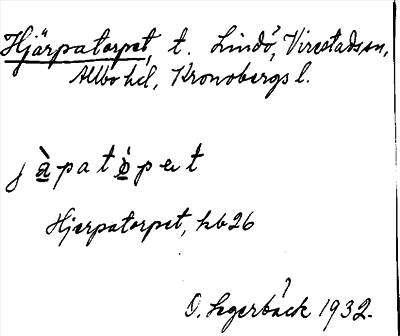 Hjärpatorpet, t. Lindö, Virestads sn,
Allbo hd, Kronobergs l.
jàpatòpet
Hjerpatorpet, hb 26
O. Lagerbäck 1932.